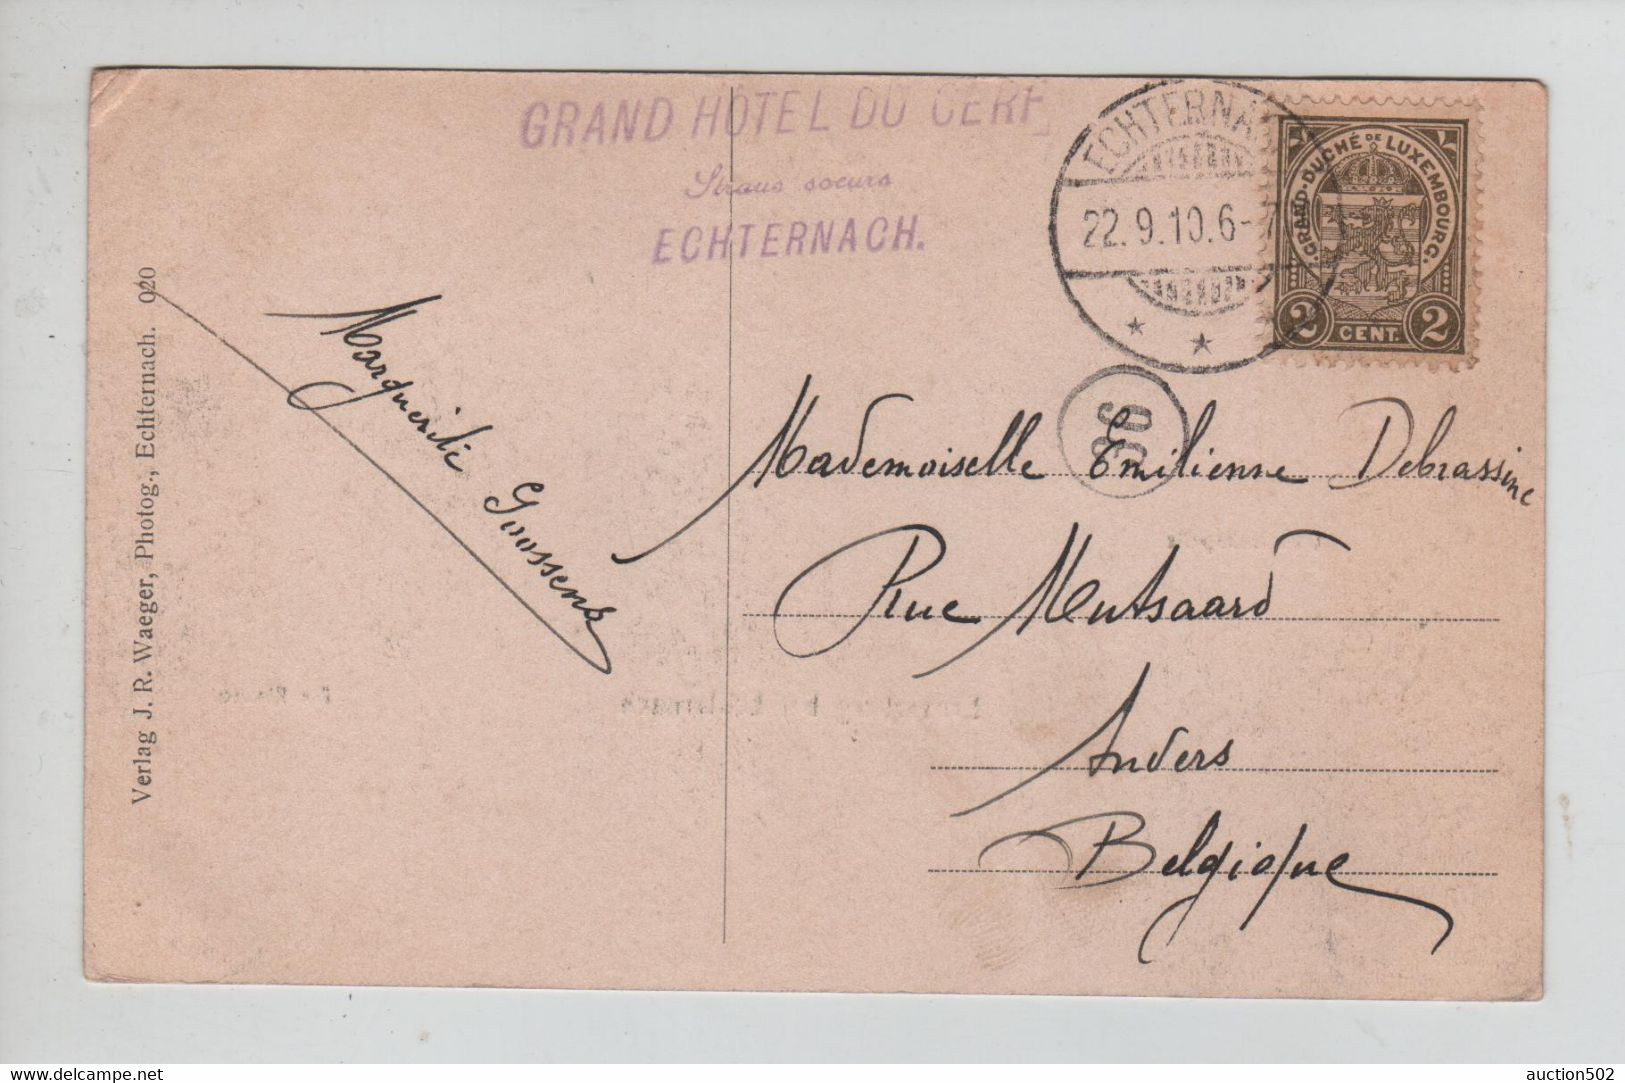 GRAND HÔTEL DU CERF
Straus soeurs
ECHTERNACH.
ECHTERNA
22.9.10.6-7
GRAND-DUCHÉ DE LUXEMBOURG.
2 CENT. 2
36
Marguerite Goossens
Mademoiselle Emilienne Debrassine
Rue Mutsaard
Anvers
Belgique
Verlag J. R. Waeger, Photog., Echternach. 020
www.delcampe.net
auction502